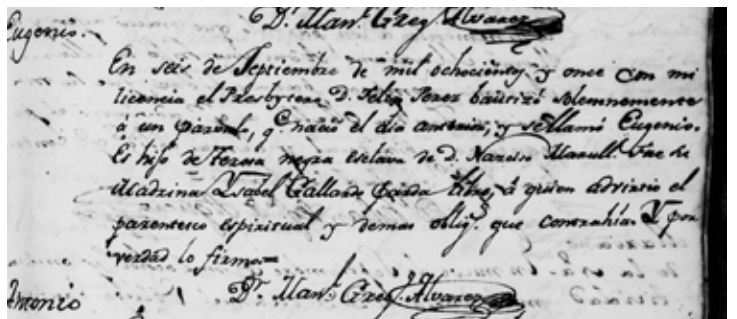 Dr. Man.l Greg.o Alvarez
Eugenio.
En seis de Septiembre de mil ochocientos y once con mi
licencia el Presbytero D. Felix Perez bautizó solemnemente
á un parvulo, q.e nació el dia anterior, y se llamó Eugenio.
Es hijo de Teresa negra esclava de D. Narciso Marull. Fue su
Madrina Ysabel Gallardo parda libre, á quien advirtio el
parentesco espiritual y demas oblig.s que contrahía. Y por
verdad lo firmo=
Dr. Man.l Greg.o Alvarez
Antonio